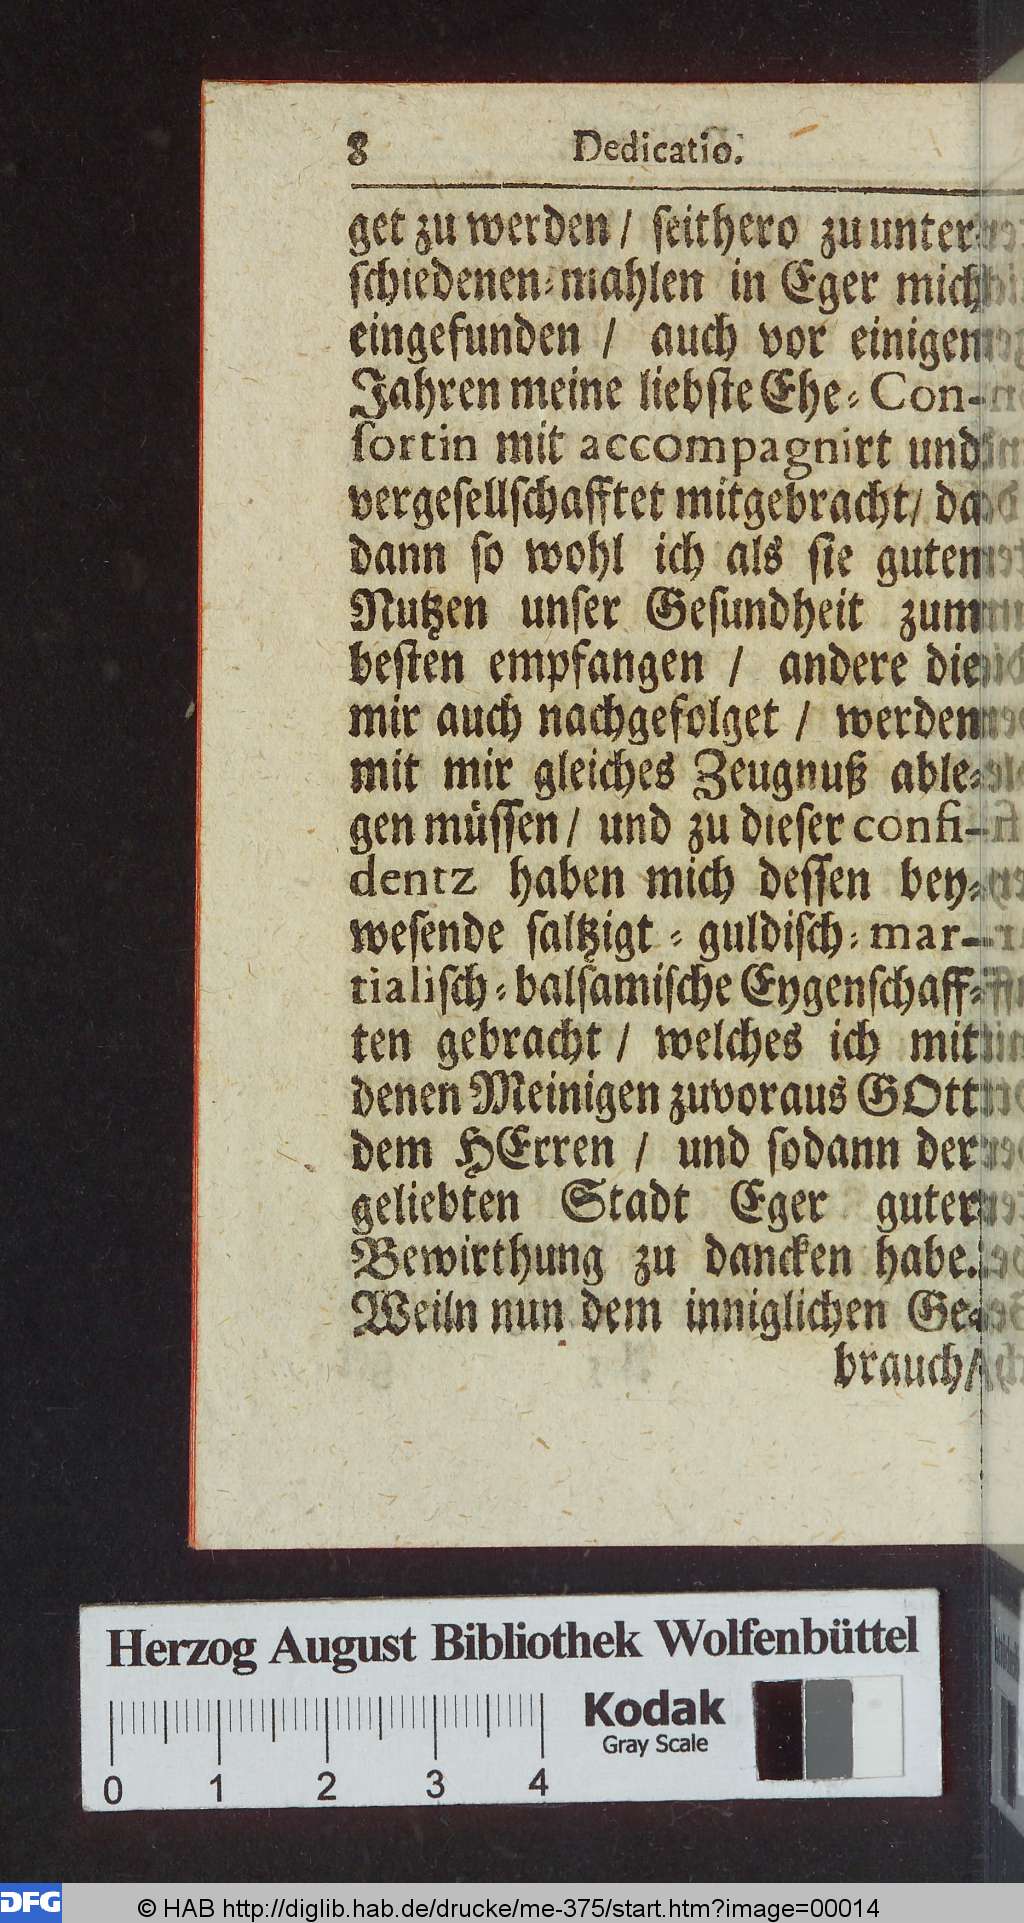 8 Dedicatio.
get zu werden / seithero zu unter-
schiedenen-mahlen in Eger mich
eingefunden / auch vor einigen
Jahren meine liebste Ehe-Con-
sortin mit accompagnirt und
vergesellschafftet mitgebracht/ da
dann so wohl ich als sie guten
Nutzen unser Gesundheit zum
besten empfangen / andere die
mir auch nachgefolget / werden
mit mir gleiches Zeugnuß able-
gen müssen / und zu dieser confi-
dentz haben mich dessen bey-
wesende saltzigt-guldisch-mar-
tialisch-balsamische Eygenschaff-
ten gebracht / welches ich mit
denen Meinigen zuvoraus GOtt
dem HErren / und sodann der
geliebten Stadt Eger guter
Bewirthung zu dancken habe.
Weiln nun dem inniglichen Ge-
brauch/
Herzog August Bibliothek Wolfenbüttel
Kodak
Gray Scale
0 1 2 3 4
DFG © HAB http://diglib.hab.de/drucke/me-375/start.htm?image=00014